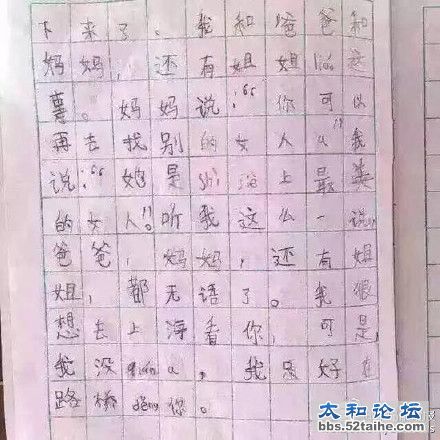 下来了。我和爸爸和
妈妈，还有姐姐liáo这
事。妈妈说：“你可以
再去找别的女人a”我
说：“她是shi jiè上最美
的女人”。听我这么一说，
爸爸，妈妈，还有姐
姐，都无语了。我很
想去上海看你，可是，
我没qiána，我只好在
路桥děng你。
太和论坛
bbs.52taihe.com